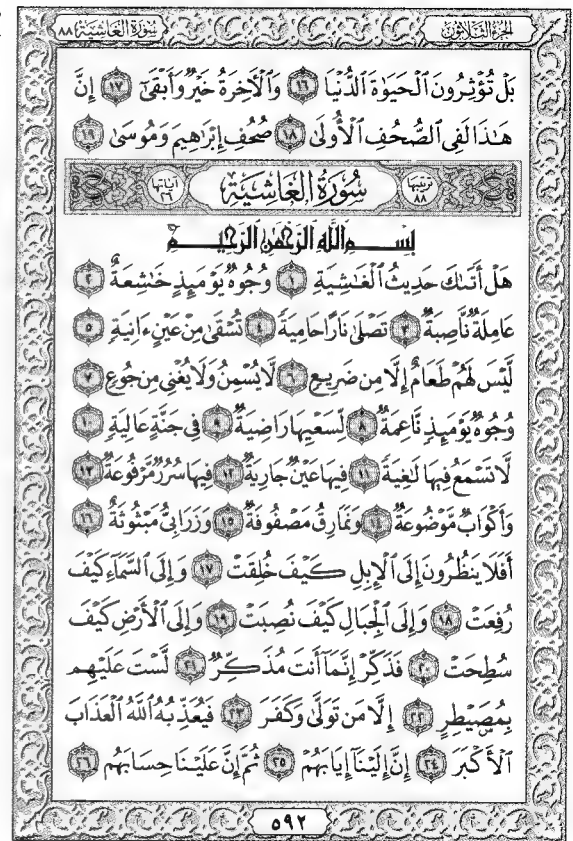 الجزء الثلاثون
سورة الغاشية ٨٨
بَلْ تُؤْثِرُونَ ٱلْحَيَوٰةَ ٱلدُّنْيَا ١٦ وَٱلْأَخِرَةُ خَيْرٌ وَأَبْقَىٰٓ ١٧ إِنَّ
هَـٰذَا لَفِى ٱلصُّحُفِ ٱلْأُولَىٰ ١٨ صُحُفِ إِبْرَٰهِيمَ وَمُوسَىٰ ١٩
ترتيبها ٨٨
سُورَةُ الغَاشِيَة
آياتها ٢٦
بِسْمِ ٱللَّهِ ٱلرَّحْمَـٰنِ ٱلرَّحِيمِ
هَلْ أَتَىٰكَ حَدِيثُ ٱلْغَـٰشِيَةِ ١ وُجُوهٌ يَوْمَئِذٍ خَـٰشِعَةٌ ٢
عَامِلَةٌ نَّاصِبَةٌ ٣ تَصْلَىٰ نَارًا حَامِيَةً ٤ تُسْقَىٰ مِنْ عَيْنٍ ءَانِيَةٍ ٥
لَّيْسَ لَهُمْ طَعَامٌ إِلَّا مِن ضَرِيعٍ ٦ لَّا يُسْمِنُ وَلَا يُغْنِى مِن جُوعٍ ٧
وُجُوهٌ يَوْمَئِذٍ نَّاعِمَةٌ ٨ لِّسَعْيِهَا رَاضِيَةٌ ٩ فِى جَنَّةٍ عَالِيَةٍ ١٠
لَّا تَسْمَعُ فِيهَا لَـٰغِيَةً ١١ فِيهَا عَيْنٌ جَارِيَةٌ ١٢ فِيهَا سُرُرٌ مَّرْفُوعَةٌ ١٣
وَأَكْوَابٌ مَّوْضُوعَةٌ ١٤ وَنَمَارِقُ مَصْفُوفَةٌ ١٥ وَزَرَابِىُّ مَبْثُوثَةٌ ١٦
أَفَلَا يَنظُرُونَ إِلَى ٱلْإِبِلِ كَيْفَ خُلِقَتْ ١٧ وَإِلَى ٱلسَّمَآءِ كَيْفَ
رُفِعَتْ ١٨ وَإِلَى ٱلْجِبَالِ كَيْفَ نُصِبَتْ ١٩ وَإِلَى ٱلْأَرْضِ كَيْفَ
سُطِحَتْ ٢٠ فَذَكِّرْ إِنَّمَآ أَنتَ مُذَكِّرٌ ٢١ لَّسْتَ عَلَيْهِم
بِمُصَۜيْطِرٍ ٢٢ إِلَّا مَن تَوَلَّىٰ وَكَفَرَ ٢٣ فَيُعَذِّبُهُ ٱللَّهُ ٱلْعَذَابَ
ٱلْأَكْبَرَ ٢٤ إِنَّ إِلَيْنَآ إِيَابَهُمْ ٢٥ ثُمَّ إِنَّ عَلَيْنَا حِسَابَهُم ٢٦
٥٩٢